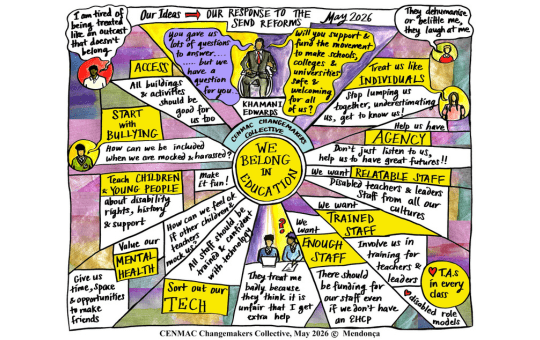 Our Ideas → OUR RESPONSE TO THE
SEND REFORMS
May 2026
I am tired of
being treated
like an outcast
that doesn't
belong
They dehumanise
or belittle me,
they laugh at me
You gave us
lots of questions
to answer....
..... but we
have a
question
for you..
Will you support &
fund the movement
to make schools,
colleges &
universities
safe &
welcoming
for all
of us?
KHAMANI
EDWARDS
CENMAC CHANGEMAKERS
COLLECTIVE
WE
BELONG
IN
EDUCATION
ACCESS
All buildings
& activities
should be
good for
us too
Treat us like
INDIVIDUALS
Stop lumping us
together, underestimating
us, get to know us!
START
with
BULLYING
How can we be included
when we are mocked & harassed?
Help us have
AGENCY
Don't just listen to us,
help us to have great futures!!
Teach CHILDREN
& YOUNG PEOPLE
about disability
rights, history
& support
Make
it fun!
We want RELATABLE STAFF
Disabled teachers & leaders
Staff from all our
cultures
We want
TRAINED
STAFF
Involve us in
training for
teachers &
leaders
Value our
MENTAL
HEALTH
Give us
time, space
& opportunities
to make
friends
How can we feel ok
if other children &
teachers
mock us
All staff should be
trained & confident
with technology
Sort out our
TECH
They treat me
badly because
they think it is
unfair that I get
extra help
We
want
ENOUGH
STAFF
There
should be
funding for
our staff even
if we don't have
an EHCP
T.A.s
in every
class
disabled role
models
CENMAC Changemakers Collective, May 2026 © Mendonça